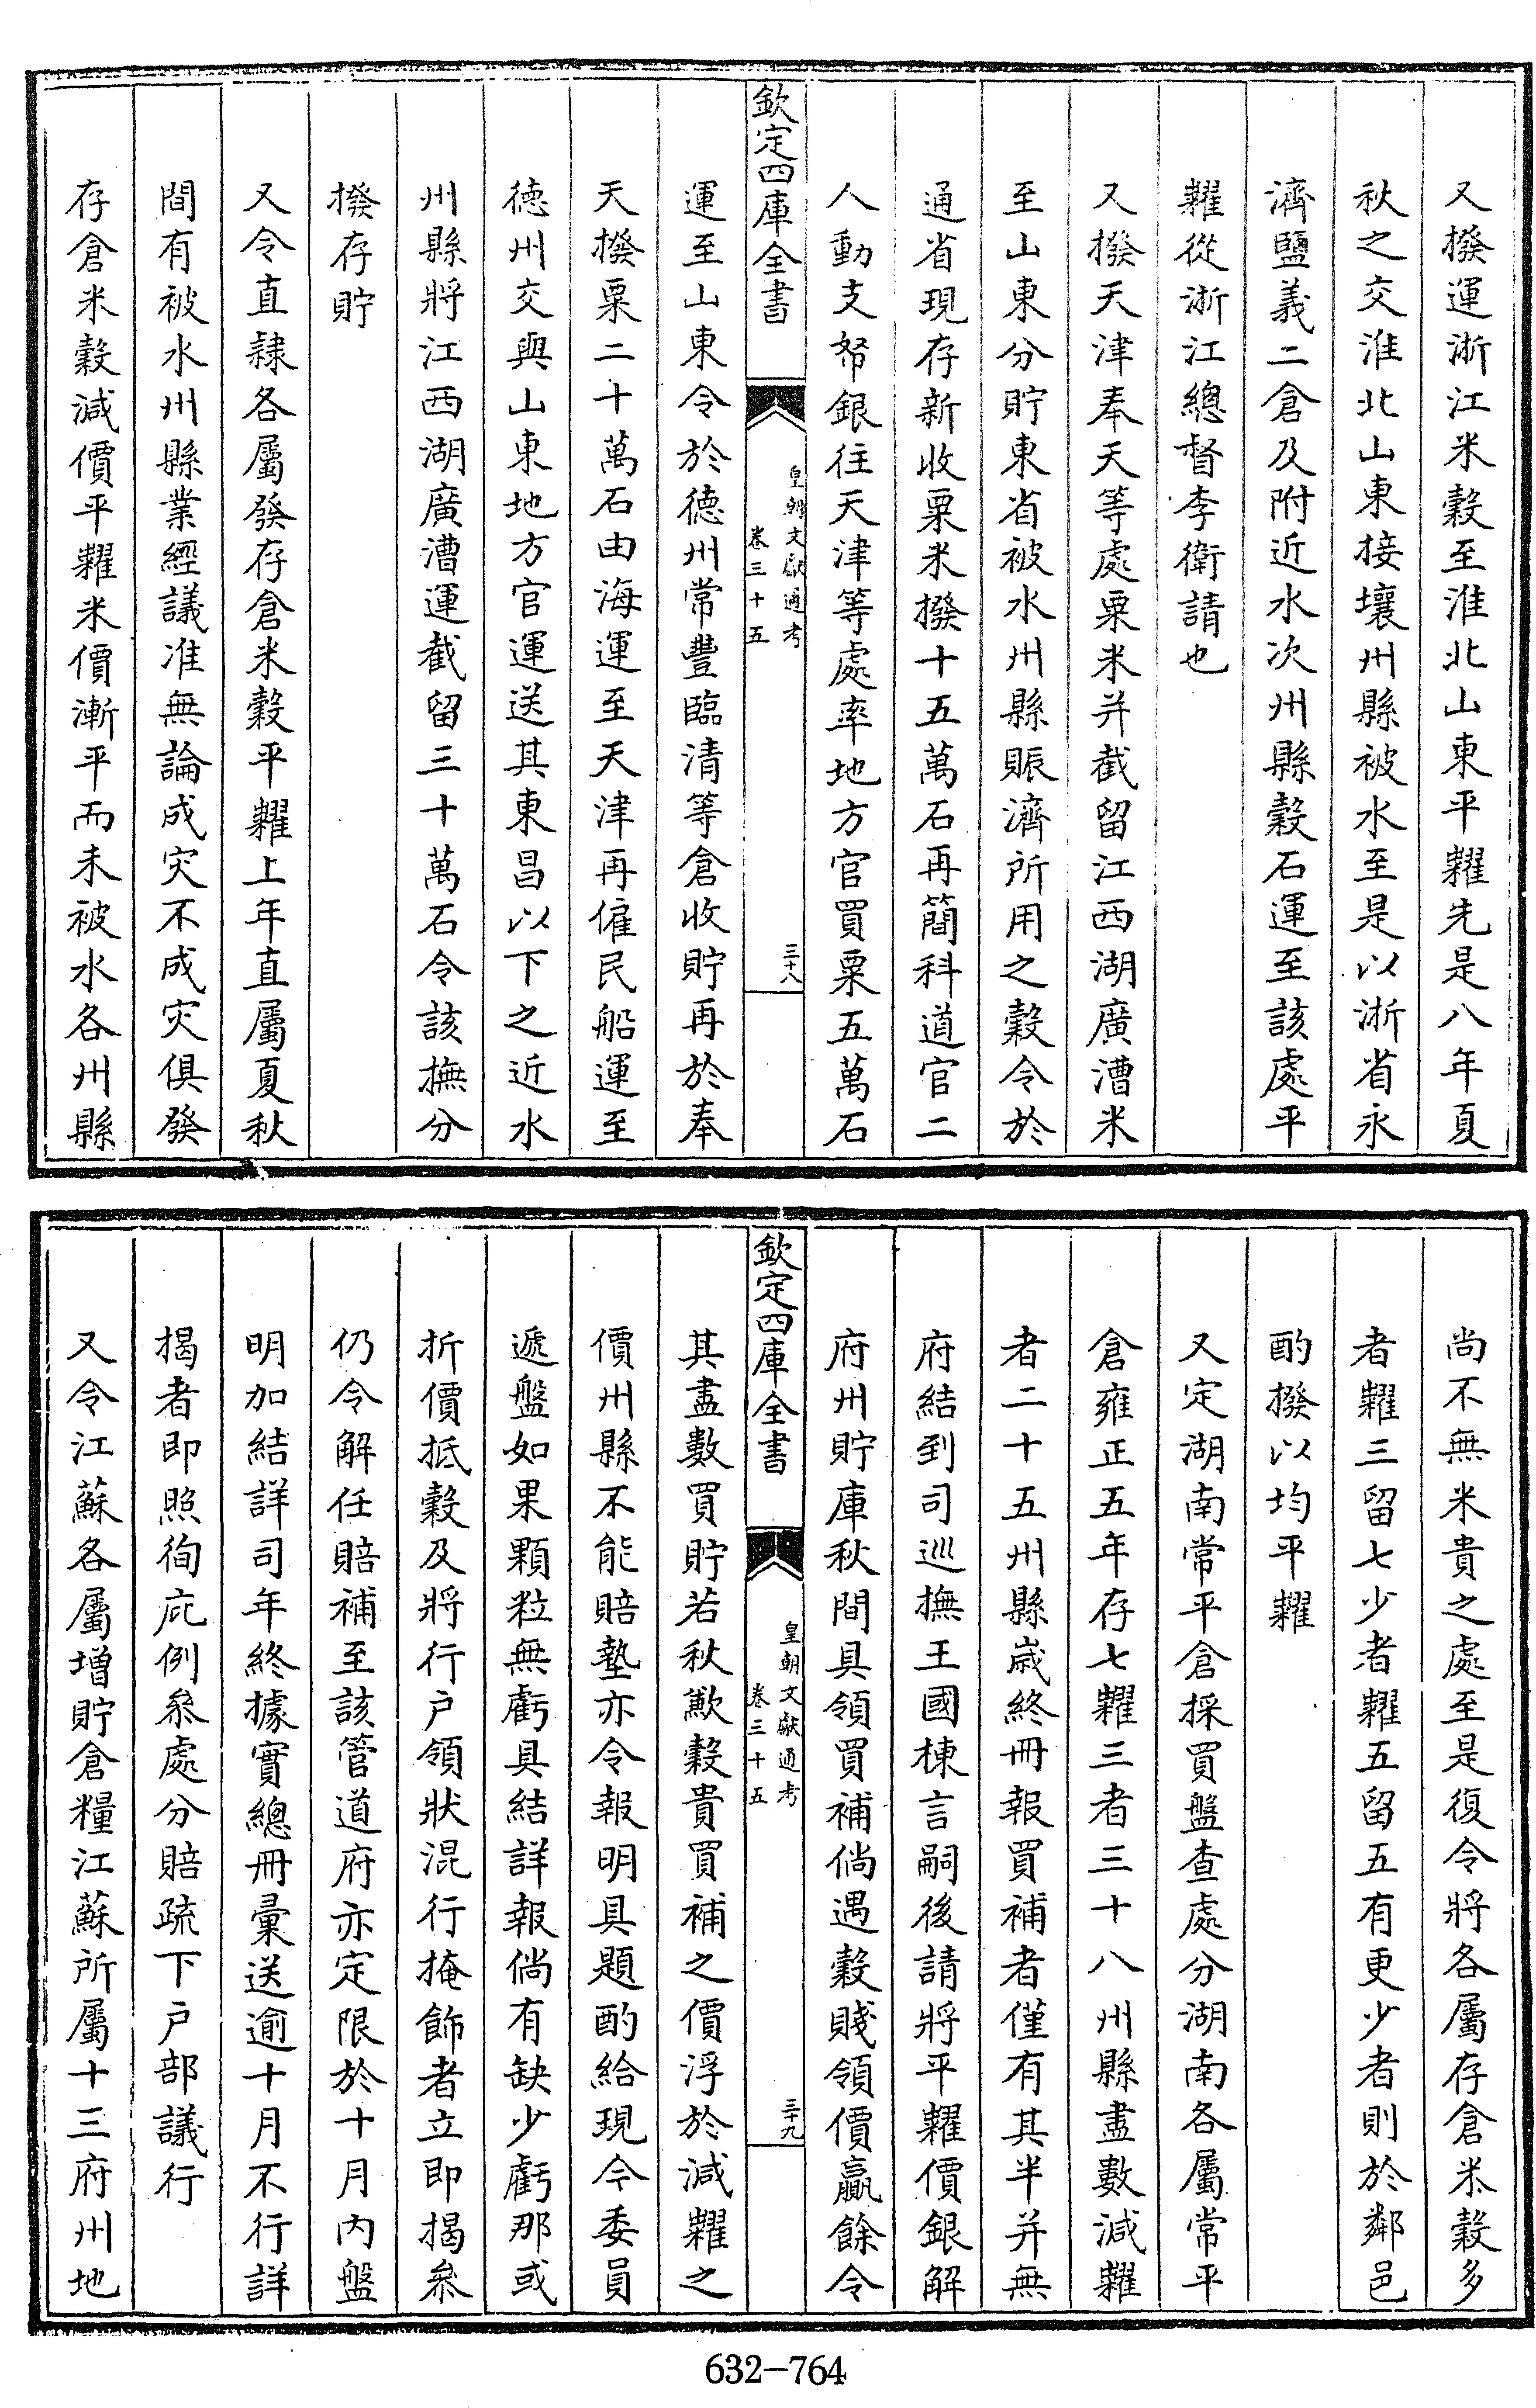 又撥運浙江米穀至淮北山東平糶先是八年夏
秋之交淮北山東接壤州縣被水至是以浙省永
濟鹽義二倉及附近水次州縣穀石運至該處平
糶從浙江總督李衛請也
又撥天津奉天等處粟米并截留江西湖廣漕米
至山東分貯東省被水州縣賑濟所用之穀令於
通省現存新收粟米撥十五萬石再簡科道官二
人動支帑銀往天津等處率地方官買粟五萬石
欽定四庫全書
皇朝文獻通考
卷三十五
三十八
運至山東令於德州常豐臨清等倉收貯再於奉
天撥粟二十萬石由海運至天津再僱民船運至
德州交與山東地方官運送其東昌以下之近水
州縣將江西湖廣漕運截留三十萬石令該撫分
撥存貯
又令直隸各屬發存倉米穀平糶上年直屬夏秋
間有被水州縣業經議准無論成灾不成灾俱發
存倉米穀減價平糶米價漸平而未被水各州縣
尚不無米貴之處至是復令將各屬存倉米穀多
者糶三留七少者糶五留五有更少者則於鄰邑
酌撥以均平糶
又定湖南常平倉採買盤查處分湖南各屬常平
倉雍正五年存七糶三者三十八州縣盡數減糶
者二十五州縣嵗終冊報買補者僅有其半并無
府結到司巡撫王國棟言嗣後請將平糶價銀解
府州貯庫秋間具領買補倘遇穀賤領價贏餘令
欽定四庫全書
皇朝文獻通考
卷三十五
三十九
其盡數買貯若秋歉穀貴買補之價浮於減糶之
價州縣不能賠墊亦令報明具題酌給現令委員
遞盤如果顆粒無虧具結詳報倘有缺少虧那或
折價抵穀及將行户領狀混行掩飾者立即揭叅
仍令解任賠補至該管道府亦定限於十月內盤
明加結詳司年終據實總冊彙送逾十月不行詳
揭者即照徇庇例叅處分賠疏下户部議行
又令江蘇各屬增貯倉糧江蘇所屬十三府州地
632-764